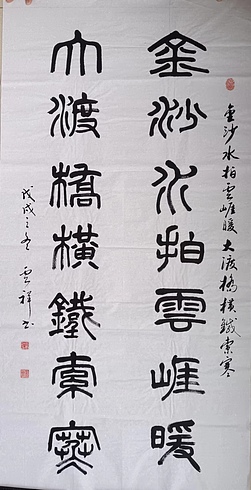 金沙水拍雲崕暖
大渡橋橫鐵索寒
金沙水拍雲崕暖大渡橋橫鐵索寒
戊戌之冬雲祥书